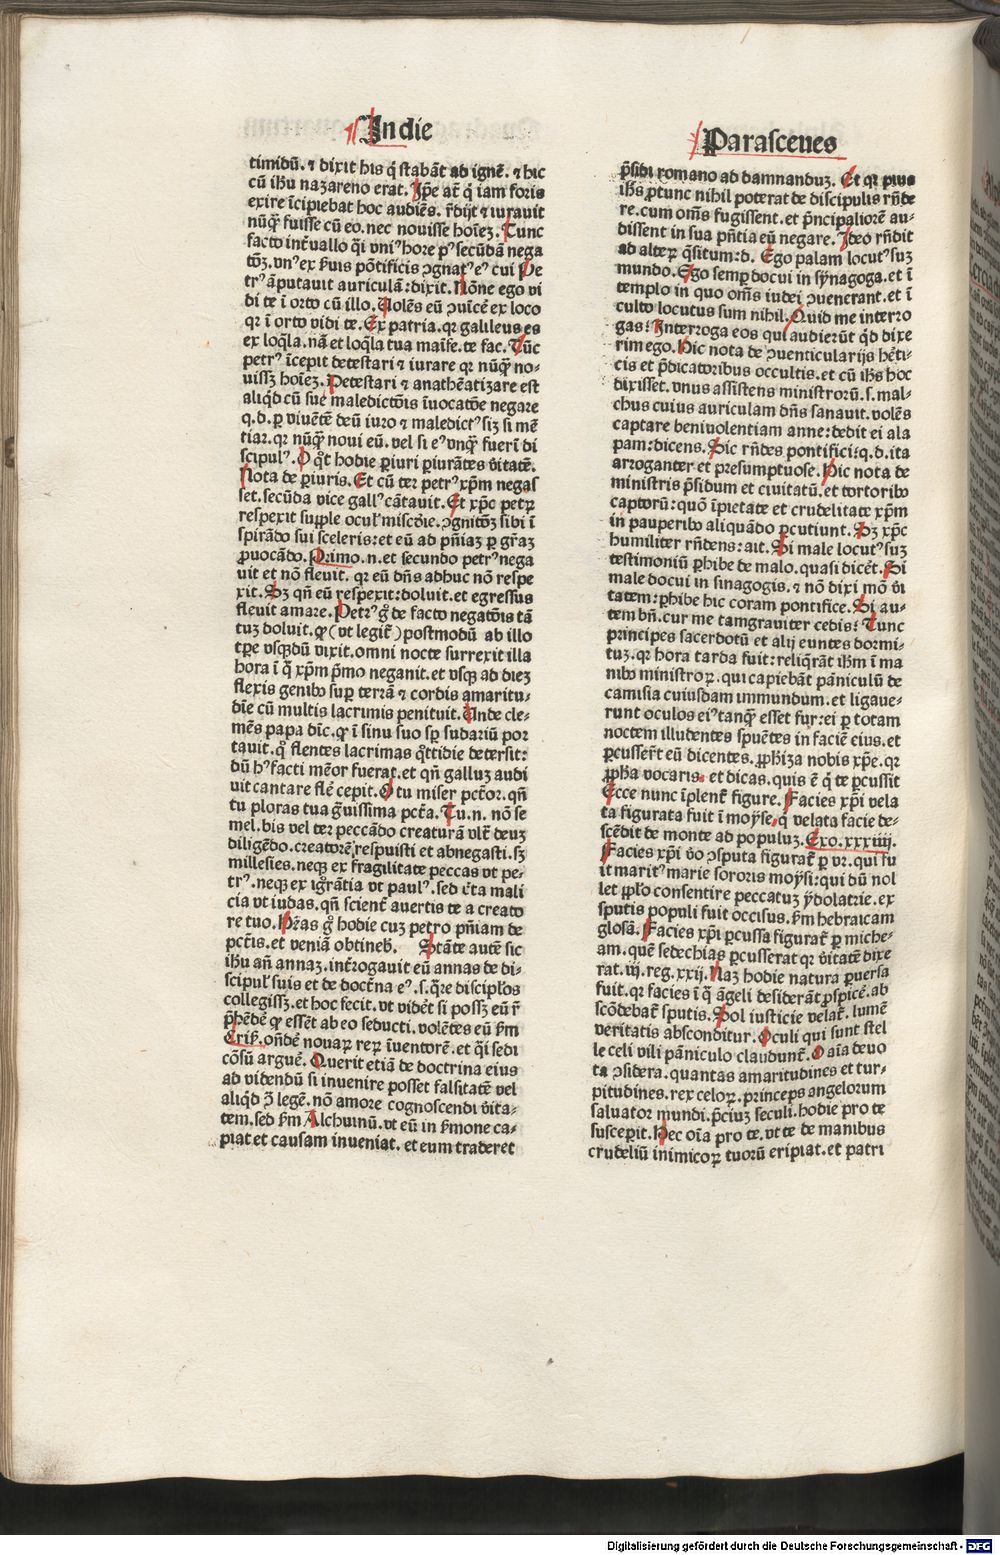 In die
timidū. ⁊ dixit his q̄ stabāt ad ignē. ⁊ hic
cū ih̄u nazareno erat. Ip̄e at̄ q̄ iam foris
exire īcipiebat hoc audiēs. r̄dijt ⁊ iurauit
nūq̄ȝ fuisse cū eo. nec nouisse hoīeȝ. Tunc
facto int̄uallo q̄i vniꝰ hore pꝰ secūdā nega
tōȝ. vnꝰ ex s̄uis pōtificis ꝯgnatꝰ eꝰ cui Pe
trꝰ āputauit auriculā: dixit. Nōne ego vi
di te ī orto cū illo. Volēs eū ꝯuīcē ex loco
qꝛ ī orto vidi te. Ex patria. qꝛ galileus es
ex loq̄la. nā et loq̄la tua maīfe. te fac. Tūc
petrꝰ īcepit detestari ⁊ iurare qꝛ nūq̄ȝ no-
uissȝ hoīeȝ. Detestari ⁊ anathēatizare est
aliq̄d cū sue maledictōis īuocatōe negare
q. d. ꝑ viuētē deū iuro ⁊ maledictꝰ siȝ si mē
tiar. qꝛ nūq̄ȝ noui eū. vel si eꝰ vnq̄ȝ fuerī di
scipulꝰ. O q̄t hodie ꝑiuri ꝑiurātes v̄itatē.
Nota de ꝑiuris. Et cū ter petrꝰ xp̄m negas
set. secūda vice gallꝰ cātauit. Et xp̄c petꝝ
respexit suꝑple oculꝭ miscd̄ie. ꝯgnitōȝ sibi ī
spirādo sui sceleris: et eū ad pn̄iaȝ ꝑ gr̄aȝ
ꝓuocādo. Primo. n. et secundo petrꝰ nega
uit et nō fleuit. qꝛ eū dn̄s adhuc nō respe
xit. Sȝ qn̄ eū respexit: doluit. et egressus
fleuit amare. Petrꝰ g̊ de facto negatōis tā
tuȝ doluit. ꝙ (vt legit᷑) postmodū ab illo
tp̄e vsq̇dū vixit. omni nocte surrexit illa
hora ī q̄ xp̄m p̄mo neganit. et vsqȝ ad dieȝ
flexis genibꝰ suꝑ terrā ⁊ cordis amaritu-
dīe cū multis lacrimis penituit. Unde cle-
mēs papa dīc. ꝙ ī sinu suo sp̄ sudariū por
tauit. q̊ flentes lacrimas q̊ttidie detersit:
dū hꝰ facti mēor fuerat. et qn̄ galluȝ audi
uit cantare flē cepit. O tu miser pct̄or. qn̄
tu ploras tua gͣuissima pct̄a. Tu. n. nō se
mel. bis vel ter peccādo creaturā vlt̄ deuȝ
diligēdo. creatorē respuisti et abnegasti. sȝ
millesies. neqȝ ex fragilitate peccas vt pe-
trꝰ. neqȝ ex igr̄ātia vt paulꝰ. sed c̄ta mali
cia vt iudas. qn̄ scient᷑ auertis te a creato
re tuo. Hr̄as g̊ hodie cuȝ petro pn̄iam de
pct̄is. et veniā obtineb̄. Stāte autē sic
ih̄u añ annaȝ. int̄rogauit eū annas de di-
scipulꝭ suis et de doct̄na eꝰ. s. q̄re discipl̄os
collegissȝ. et hoc fecit. vt vidēt si possȝ eū r̄
p̄hēdē ꝙ essēt ab eo seducti. volētes eū s̄m
Crisꝭ. on̄dē nouaꝝ reꝝ īuentorē. et q̄i sedi
cōsū arguē. Querit etiā de doctrina eius
ad videndū si inuenire posset falsitatē vel
aliq̄d ꝯ̄ legē. nō amore cognoscendi v̄ita-
tem. sed s̄m Alchuinū. vt eū in s̄mone ca-
piat et causam inueniat. et eum traderet
Parasceues
p̄sidi romano ad damnanduȝ. Et qꝛ pius
ih̄s ꝓtunc nihil poterat de discipulis rn̄de
re. cum om̄s fugissent. et p̄ncipaliorē au-
dissent in sua pn̄tia eū negare. Ideo rn̄dit
ad alteꝝ q̄situm: d. Ego palam locutꝰ suȝ
mundo. Ego semꝑ docui in synagoga. et ī
templo in quo om̄s iudei ꝯuenerant. et ī
culto locutus sum nihil. Quid me interro
gas? Interroga eos qui audierūt q̄d dixe
rim ego. Hic nota de ꝯuenticularijs hēti-
cis et p̄dicatoribus occultis. et cū ih̄s hoc
dixisset. vnus assistens ministrorū. s. mal-
chus cuius auriculam dn̄s sanauit. volēs
captare beniuolentiam anne: dedit ei ala
pam: dicens. Sic rn̄des pontifici: q. d. ita
arroganter et presumptuose. Hic nota de
ministris p̄sidum et ciuitatū. et tortoribꝰ
captorū: quō īpietate et crudelitate xp̄m
in pauperibꝰ aliquādo ꝑcutiunt. Sȝ xp̄c
humiliter rn̄dens: ait. Si male locutꝰ suȝ
testimoniū ꝑhibe de malo. quasi dicēt. Si
male docui in sinagogis. ⁊ nō dixi mō v̄i
tatem: ꝑhibe hic coram pontifice. Si au-
tem bn̄. cur me tamgrauiter cedis? Tunc
principes sacerdotū et alij euntes dormi-
tuȝ. qꝛ hora tarda fuit: reliq̄rāt ih̄m ī ma
nibꝰ ministroꝝ. qui capiebāt pāniculū de
camisia cuiusdam immundum. et ligaue-
runt oculos eiꝰ tanq̄ȝ esset fur: ei ꝑ totam
noctem illudentes spuētes in faciē eius. et
ꝑcusser̄t eū dicentes. ꝓph̄iza nobis xp̄e. qꝛ
ꝓph̄a vocaris. et dicas. quis ē q̄ te ꝑcussit
Ecce nunc īplent᷑ figure. Facies xp̄i vela
ta figurata fuit ī moyse. q̄ velata facie de-
scēdit de monte ad populuȝ. Exo. xxxiiij.
Facies xp̄i v̊o ꝯsputa figurat᷑ ꝑ vr. qui fu
it maritꝰ marie sororis moysi: qui dū nol
let pp̄lo consentire peccatuȝ ydolatrie. ex
sputis populi fuit occisus. s̄m hebraicam
glosā. Facies xp̄i ꝑcussa figurat᷑ ꝑ miche-
am. quē sedechias ꝑcusserat qꝛ v̄itatē dixe
rat. iij. reg. xxij. Naȝ hodie natura ꝑuersa
fuit. qꝛ facies ī q̄ āgeli desiderāt ꝓspicē. ab
scōdebat᷑ sputis. Sol iusticie velat᷑. lumē
veritatis absconditur. Oculi qui sunt stel
le celi vili pāniculo claudunt᷑. O aīa deuo
ta ꝯsidera. quantas amaritudines et tur-
pitudines. rex celoꝝ. princeps angelorum
saluator mundi. p̄cium seculi. hodie pro te
suscepit. Hec oīa pro te. vt te de manibus
crudeliū inimicoꝝ tuorū eripiat. et patri
Digitalisierung gefördert durch die Deutsche Forschungsgemeinschaft - DFG